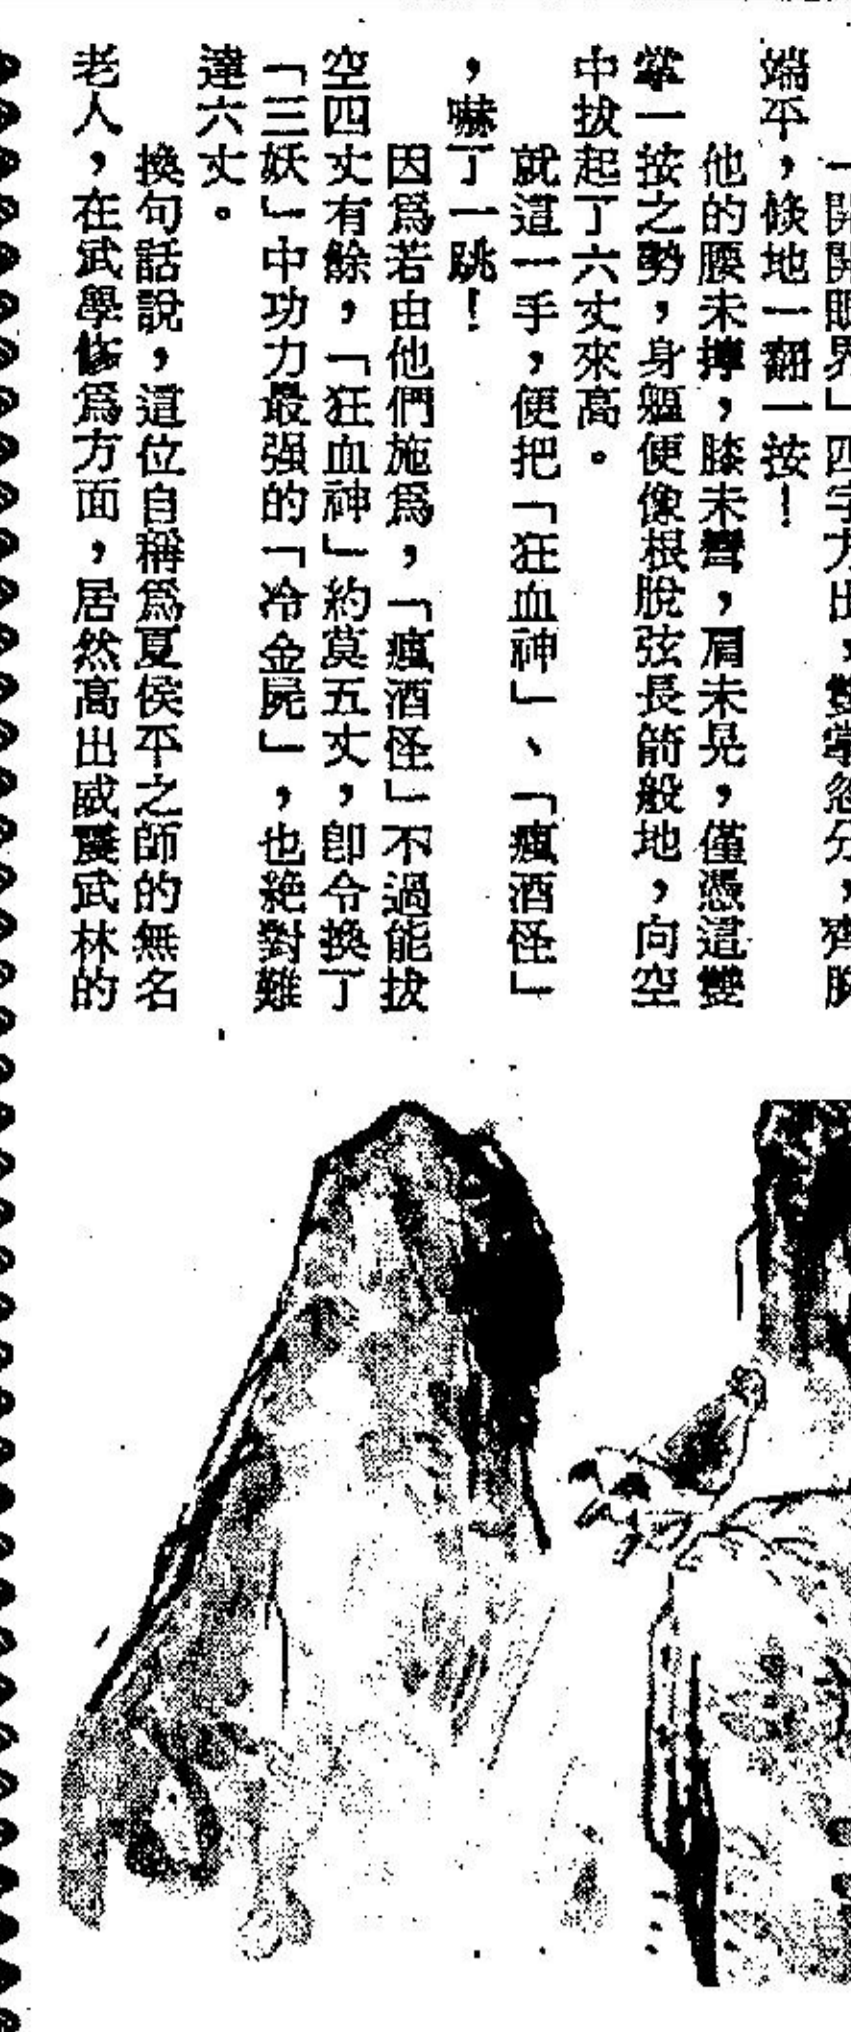 「開開眼界」四字方出，雙掌忽分，齊胸
端平，倏地一翻一按！
他的腰未擰，膝未彎，肩未晃，僅憑這雙
掌一按之勢，身軀便像根脫弦長箭般地，向空
中拔起了六丈來高。
就這一手，便把「狂血神」、「瘋酒怪」
，嚇了一跳！
因爲若由他們施爲，「瘋酒怪」不過能拔
空四丈有餘，「狂血神」約莫五丈，卽令換了
「三妖」中功力最强的「冷金屍」，也絕對難
達六丈。
換句話說，這位自稱爲夏侯平之師的無名
老人，在武學修爲方面，居然高出威震武林的